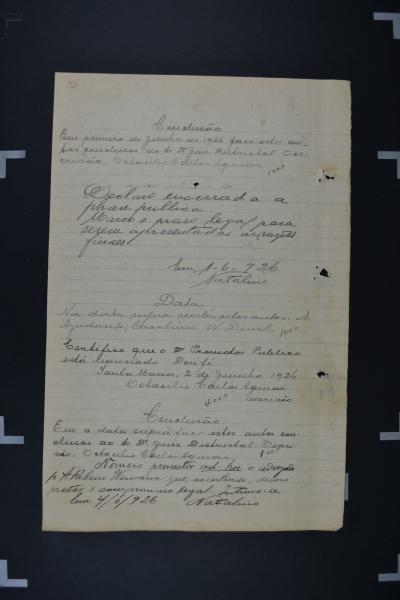 Conclusão
Em primeiro de junho de 1926 faço estes au-
tos conclusos ao Sr. Dr. Juiz Districtal Do
escrivão, Octacilio Carlos Aguiar
1000
Declaro encerrada a
phase publica.
Marco o praso legal para
serem apresentadas as razões
finaes.
Em, 1-6-926
Natalicio
Data
Na data supra recebi estes autos. A
Ajudante, Carolina W. Druck 1000
Certifico que o Dr. Promotor Publico
está licenciado. Dou fé
Santa Maria, 2 de Junho 1926
Octacilio Carlos Aguiar
escrivão
Conclusão
Em a data supra faço estes autos con-
clusos ao Sr. Dr. Juiz Districtal O escri-
vão, Octacilio Carlos Aguiar 1000
Nomeio promotor ad hoc o advogado
A. Ribeiro que, acceitando,
prestar o compromisso legal. Intime-se
Em 4/6/926 Natalicio